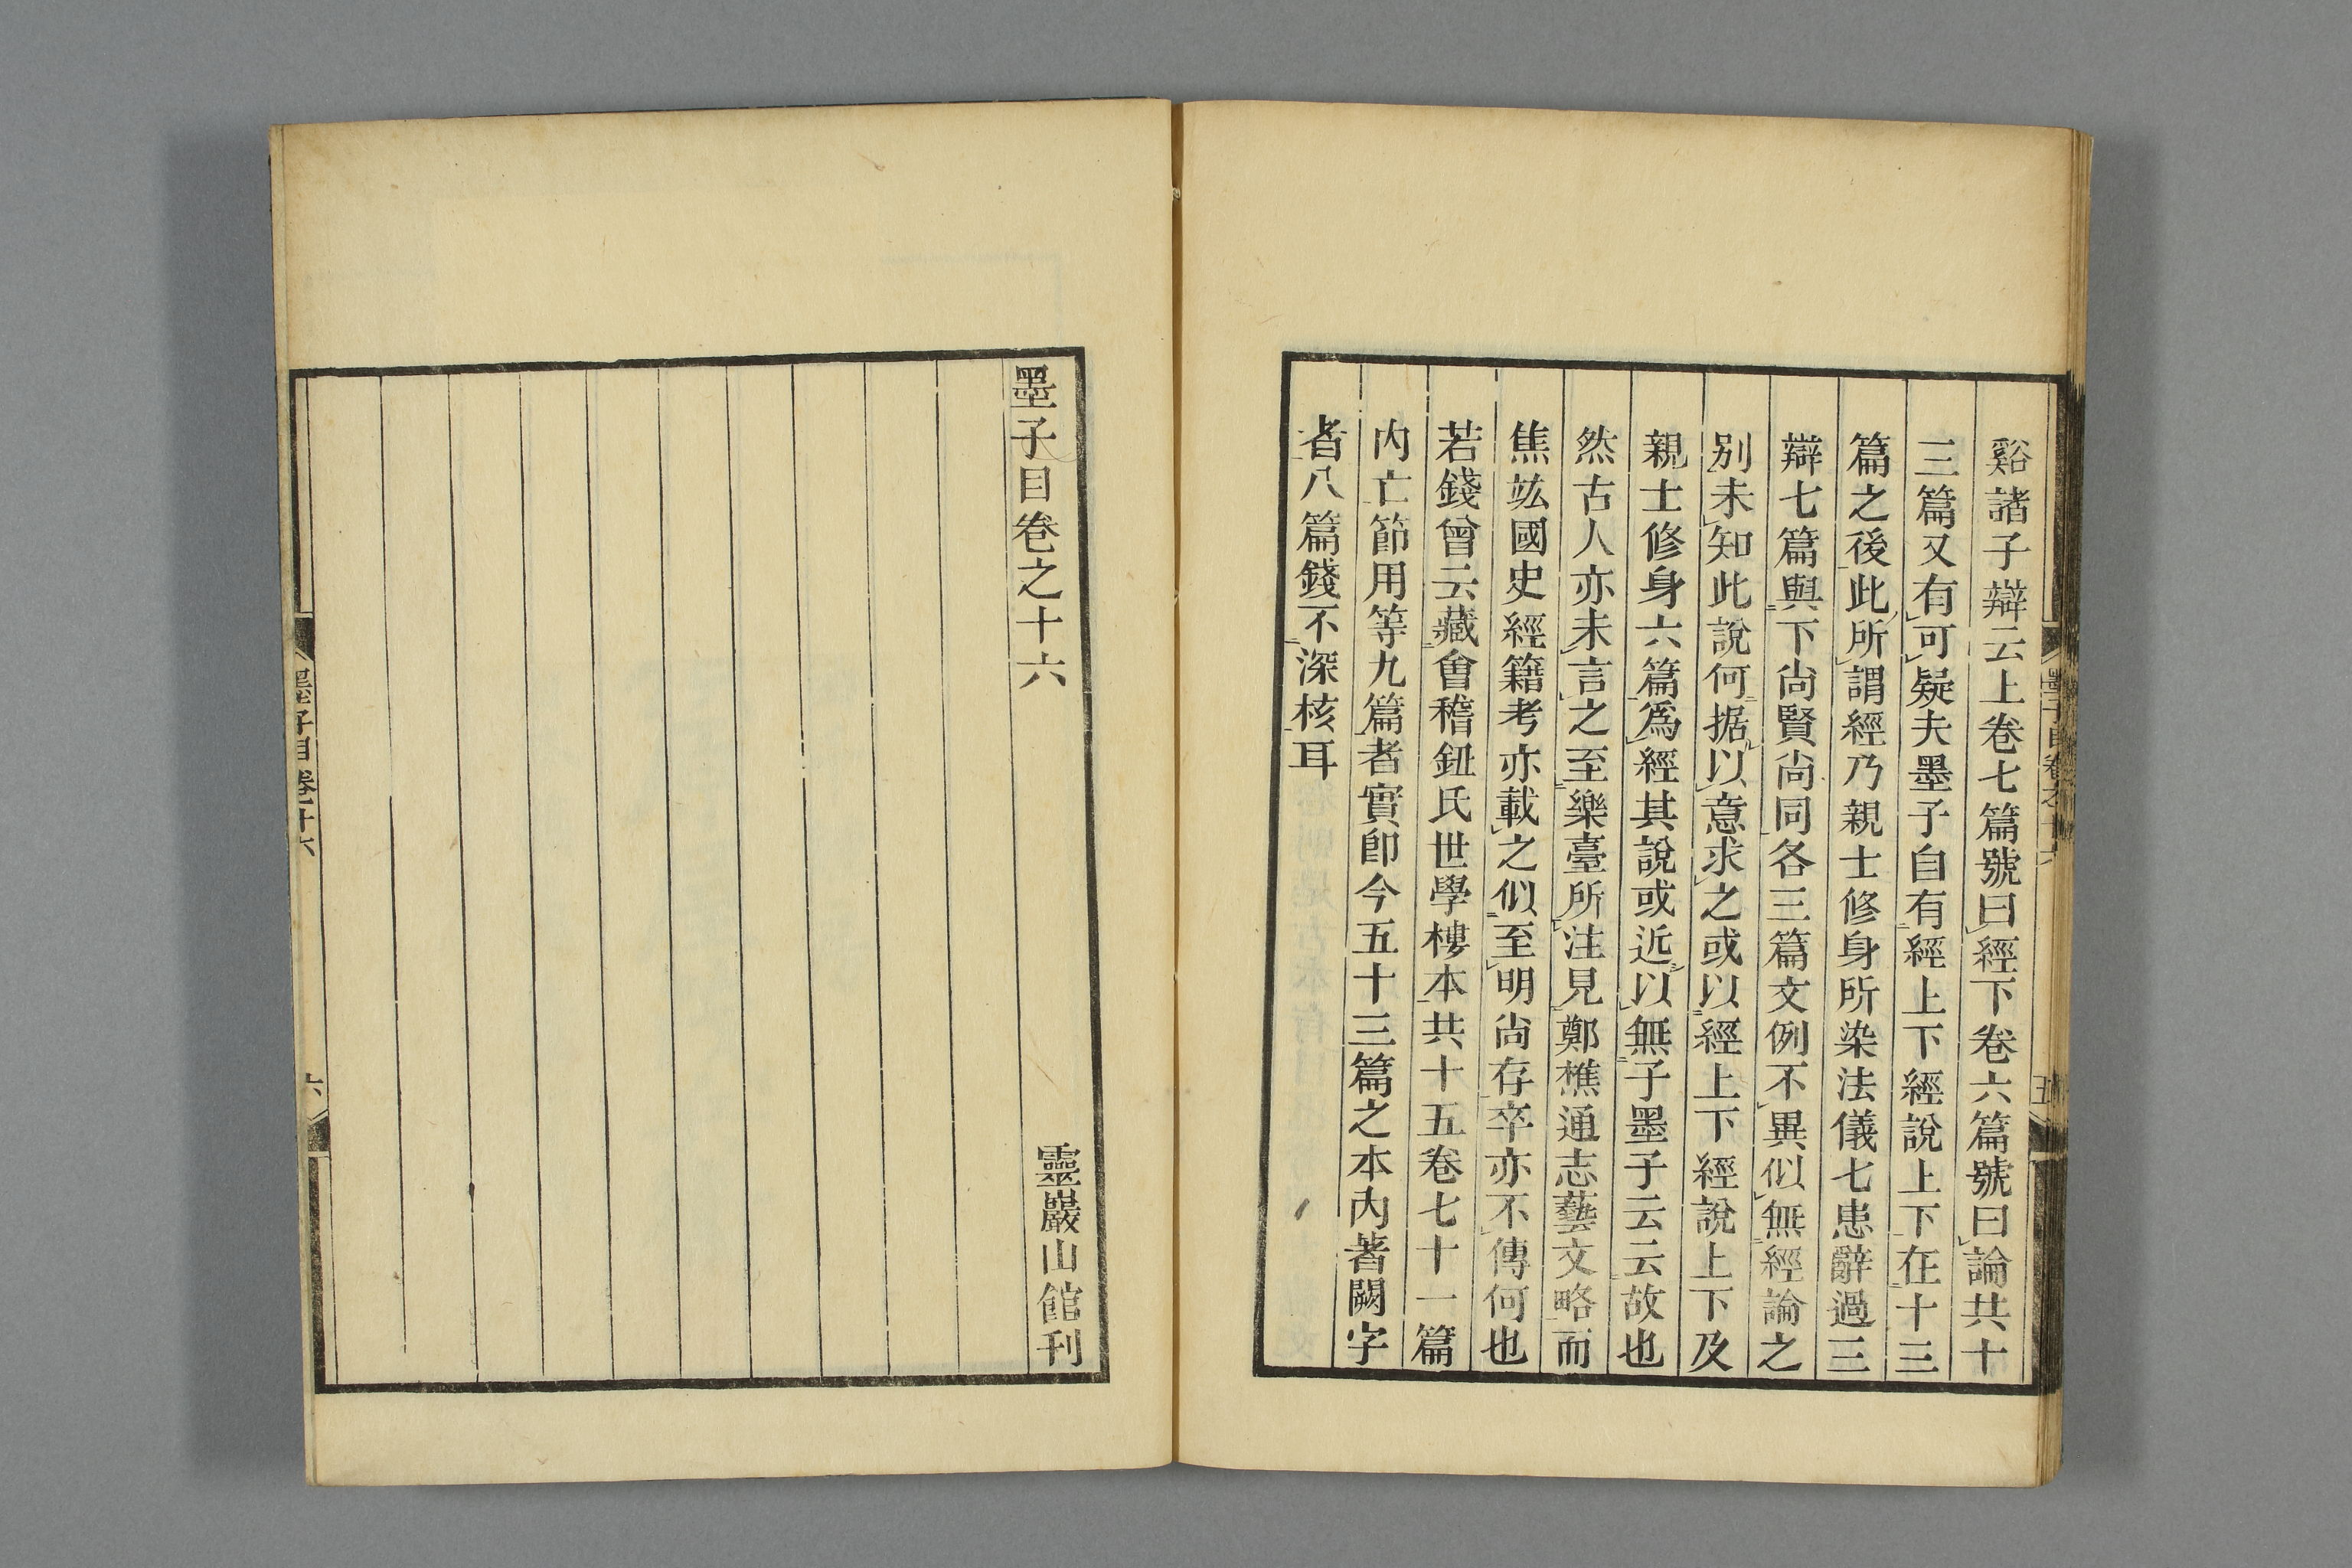 谿諸子辯云上卷七篇號曰經下卷六篇號曰論共十
三篇又有可疑夫墨子自有經上下經說上下在十三
篇之後此所謂經乃親士修身所染法儀七患辭過三
辯七篇與下尚賢尚同各三篇文例不異似無經論之
別未知此說何据以意求之或以經上下經說上下及
親士修身六篇爲經其說或近以無子墨子云云故也
然古人亦未言之至樂臺所注見鄭樵通志藝文略而
焦竑國史經籍考亦載之似至明尚存卒亦不傳何也
若錢曾云藏會稽鈕氏世學樓本共十五卷七十一篇
內亡節用等九篇者實即今五十三篇之本內著闕字
者八篇錢不深核耳
墨子目卷之十六
五
墨子目卷之十六
靈巖山館刊
墨子目卷之十六
六